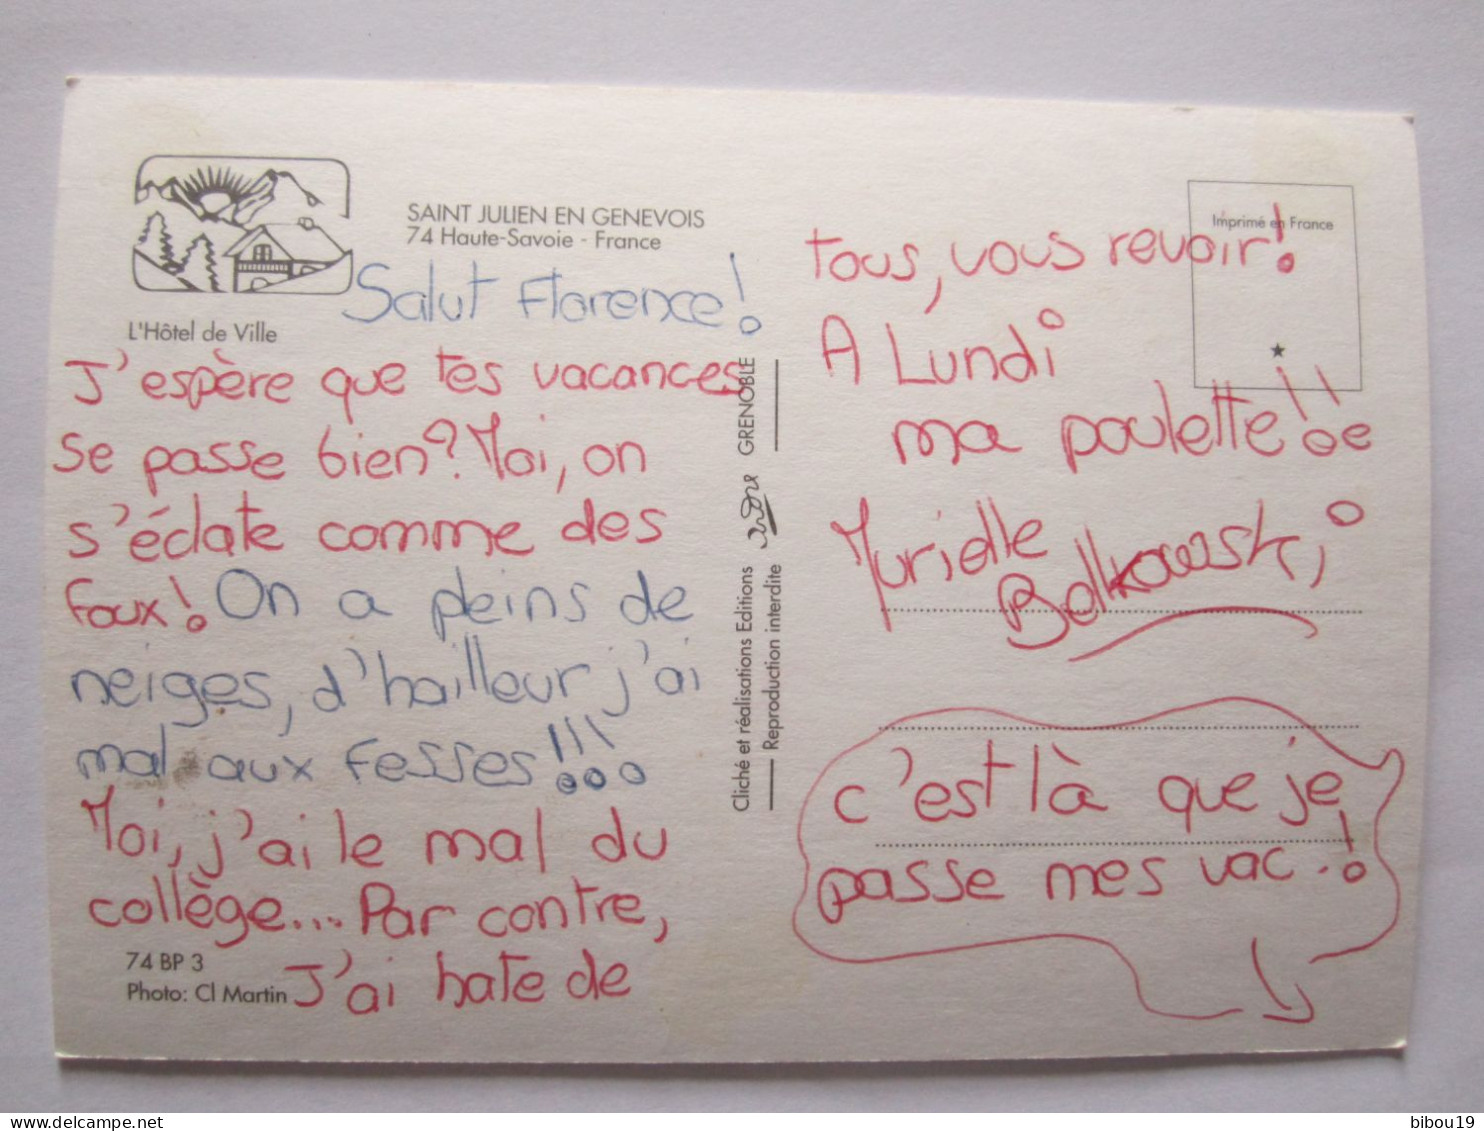 SAINT JULIEN EN GENEVOIS
74 Haute-Savoie - France
L'Hôtel de Ville
Salut Florence!
J'espère que tes vacances
se passe bien? Moi, on
s'éclate comme des
foux! On a pleins de
neiges, d'hailleur j'ai
mal aux fesses!!!
Moi, j'ai le mal du
collège... Par contre,
J'ai hate de
74 BP 3
Photo: Cl Martin
Cliché et réalisations Editions
GRENOBLE
Reproduction interdite
Imprimé en France
tous, vous revoir!
A Lundi
ma poulette!!
Murielle
Belkowski
c'est là que je
passe mes vac.!
bibou19